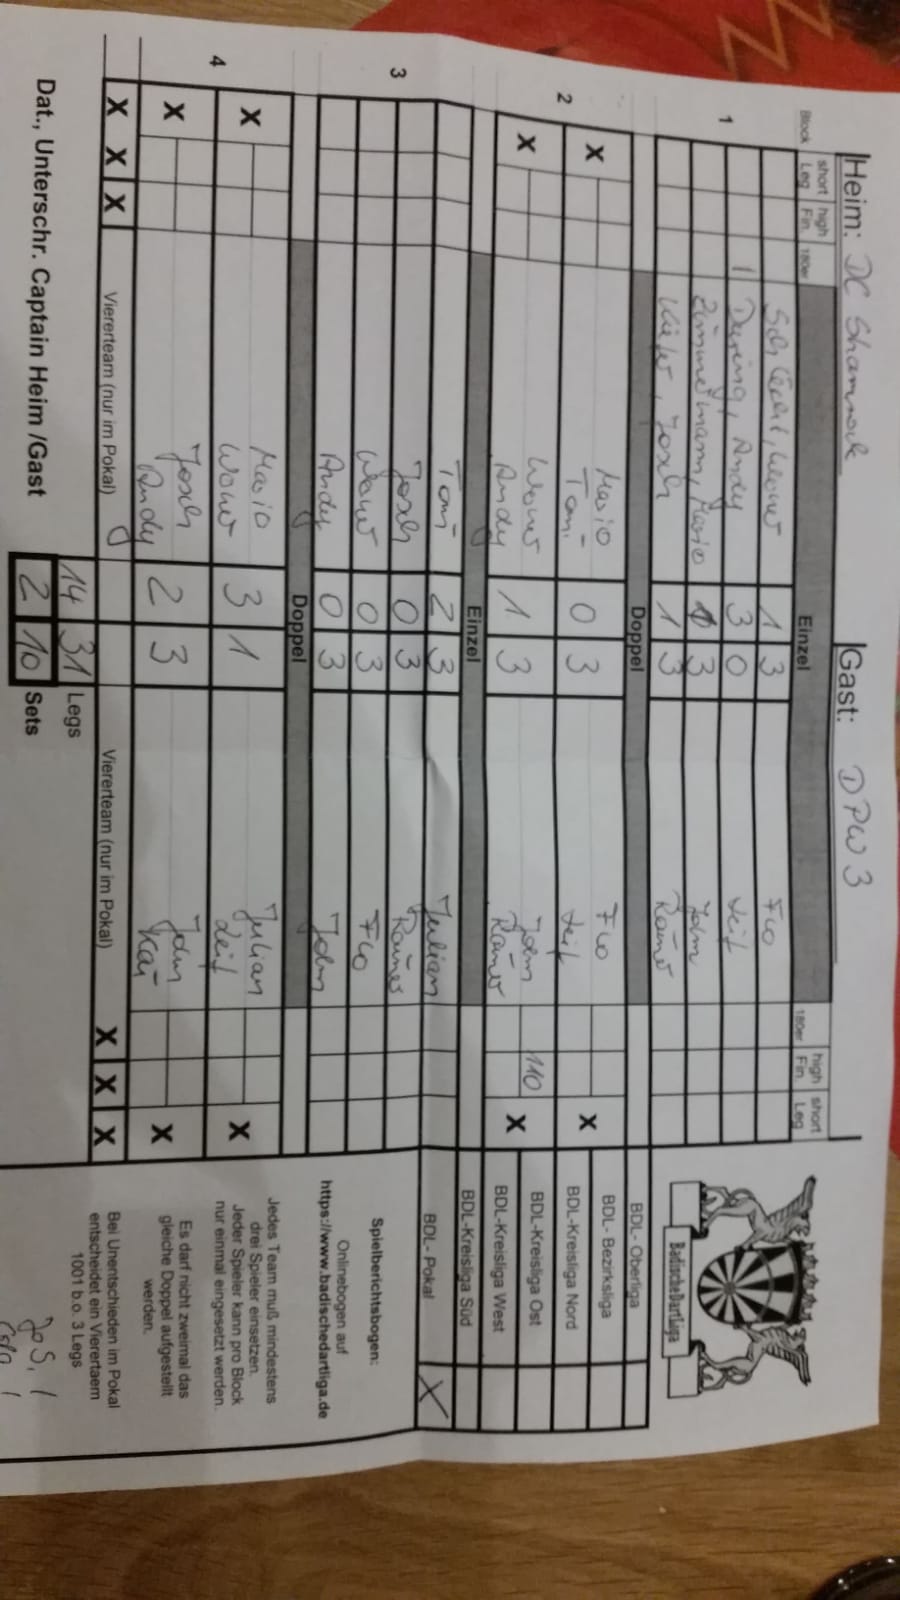 Heim: DC Shamrock Gast: DPW 3
Block short Leg high Fin. 180er Einzel 180er high Fin. short Leg
Schlecht, Werner 1 3 Flo
1 1 Deining, Andy 3 0 Leif
Zimmermann, Mario 3 John
Kiefer, Josch 1 3 Rainer
Doppel
2 X Mario Toni 0 3 Flo Leif X
X Werner Andy 1 3 John Rainer 110 X
Einzel
Toni 2 3 Julian
3 Josch 0 3 Rainer
Werner 0 3 Flo
Andy 0 3 John
Doppel
4 X Mario Werner 3 1 Julian Leif X
X Josch Andy 2 3 John Kai X
X X X Viererteam (nur im Pokal) Viererteam (nur im Pokal) X X X
14 31 Legs
Dat., Unterschr. Captain Heim /Gast 2 10 Sets
Badische Dart Liga
BDL- Oberliga
BDL- Bezirksliga
BDL-Kreisliga Nord
BDL-Kreisliga Ost
BDL-Kreisliga West
BDL-Kreisliga Süd
BDL- Pokal X
Spielberichtsbogen:
Onlinebogen auf
https://www.badischedartliga.de
Jedes Team muß mindestens
drei Spieler einsetzen.
Jeder Spieler kann pro Block
nur einmal eingesetzt werden.
Es darf nicht zweimal das
gleiche Doppel aufgestellt
werden.
Bei Unentschieden im Pokal
entscheidet ein Vierertaem
1001 b.o. 3 Legs